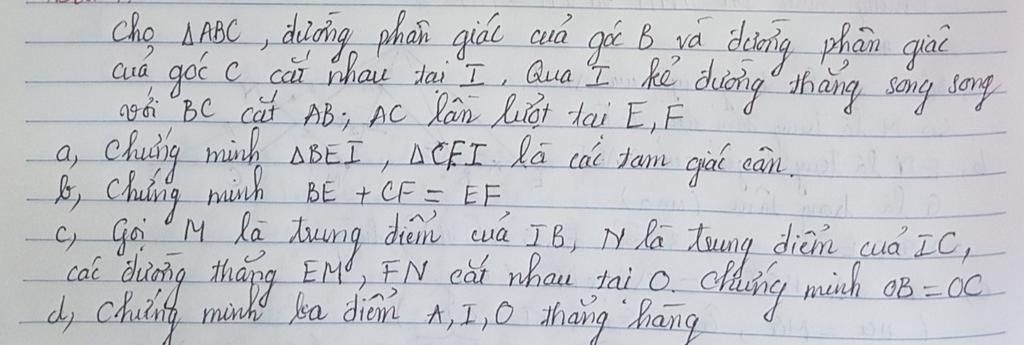 Cho ΔABC, đường phân giác của góc B và đường phân giác
của góc C cắt nhau tại I. Qua I kẻ đường thẳng song song
với BC cắt AB; AC lần lượt tại E, F
a, Chứng minh ΔBEI, ΔCFI là các tam giác cân.
b, Chứng minh BE + CF = EF
c, Gọi M là trung điểm của IB, N là trung điểm của IC,
các đường thẳng EM, FN cắt nhau tại O. Chứng minh OB = OC
d, Chứng minh ba điểm A, I, O thẳng hàng